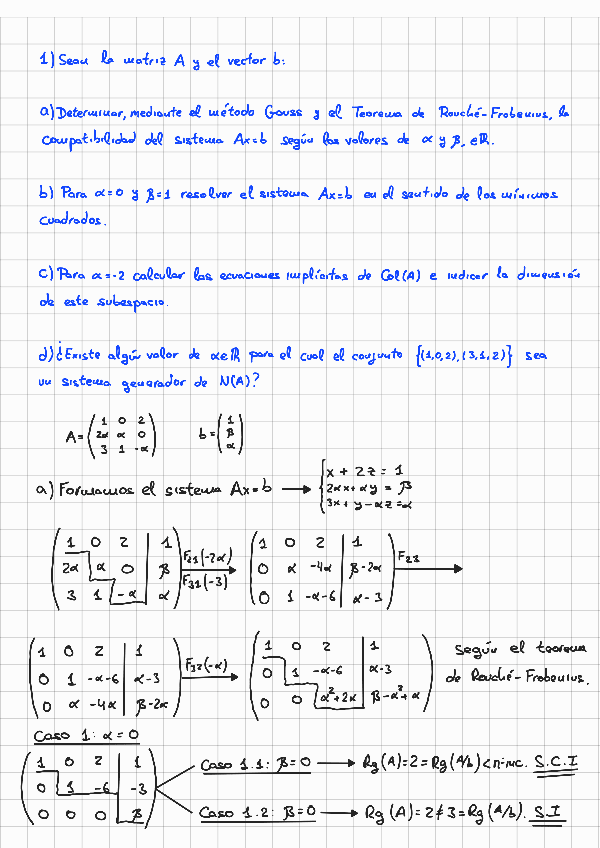 1) Sean la matriz A y el vector b:
a) Determinar, mediante el método Gauss y el Teorema de Rouché-Frobenius, la
compatibilidad del sistema Ax=b según los valores de α y β, ∈ℝ.
b) Para α=0 y β=1 resolver el sistema Ax=b en el sentido de los mínimos
cuadrados.
c) Para α=-2 calcular las ecuaciones implícitas de Col(A) e indicar la dimensión
de este subespacio.
d) ¿Existe algún valor de α∈ℝ para el cual el conjunto {(1,0,2),(3,1,2)} sea
un sistema generador de N(A)?
A = ( 1 0 2 ; 2α α 0 ; 3 1 -α ) b = ( 1 ; β ; α )
a) Formamos el sistema Ax=b → { x + 2z = 1
2αx + αy = β
3x + y - αz = α
( 1 0 2 | 1 ; 2α α 0 | β ; 3 1 -α | α ) F21(-2α) F31(-3) → ( 1 0 2 | 1 ; 0 α -4α | β-2α ; 0 1 -α-6 | α-3 ) F23 →
( 1 0 2 | 1 ; 0 1 -α-6 | α-3 ; 0 α -4α | β-2α ) F32(-α) → ( 1 0 2 | 1 ; 0 1 -α-6 | α-3 ; 0 0 α²+2α | β-α²+α ) Según el teorema
de Rouché-Frobenius.
Caso 1: α=0
( 1 0 2 | 1 ; 0 1 -6 | -3 ; 0 0 0 | β )
Caso 1.1: β=0 → Rg(A)=2=Rg(A/b)<n=inc. S.C.I
Caso 1.2: β=0 → Rg(A)=2≠3=Rg(A/b). S.I